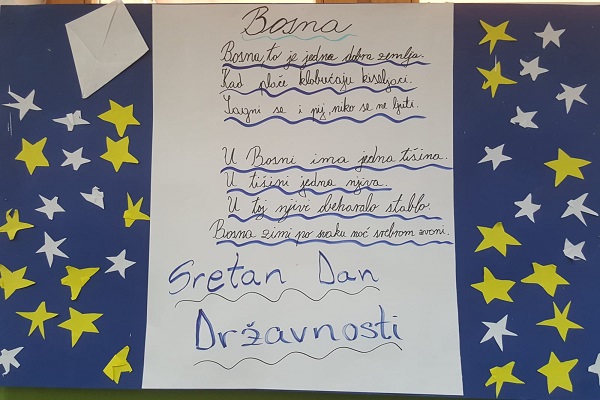 Bosna
Bosna, to je jedna dobra zemlja.
Kad plače klobučaju kiseljaci.
Sagni se i pij, niko se ne ljuti.
U Bosni ima jedna tišina.
U tišini jedna njiva.
U toj njivi beharalo stablo.
Bosna zimi po svaku noć srebrom zvoni.
Sretan Dan
Državnosti